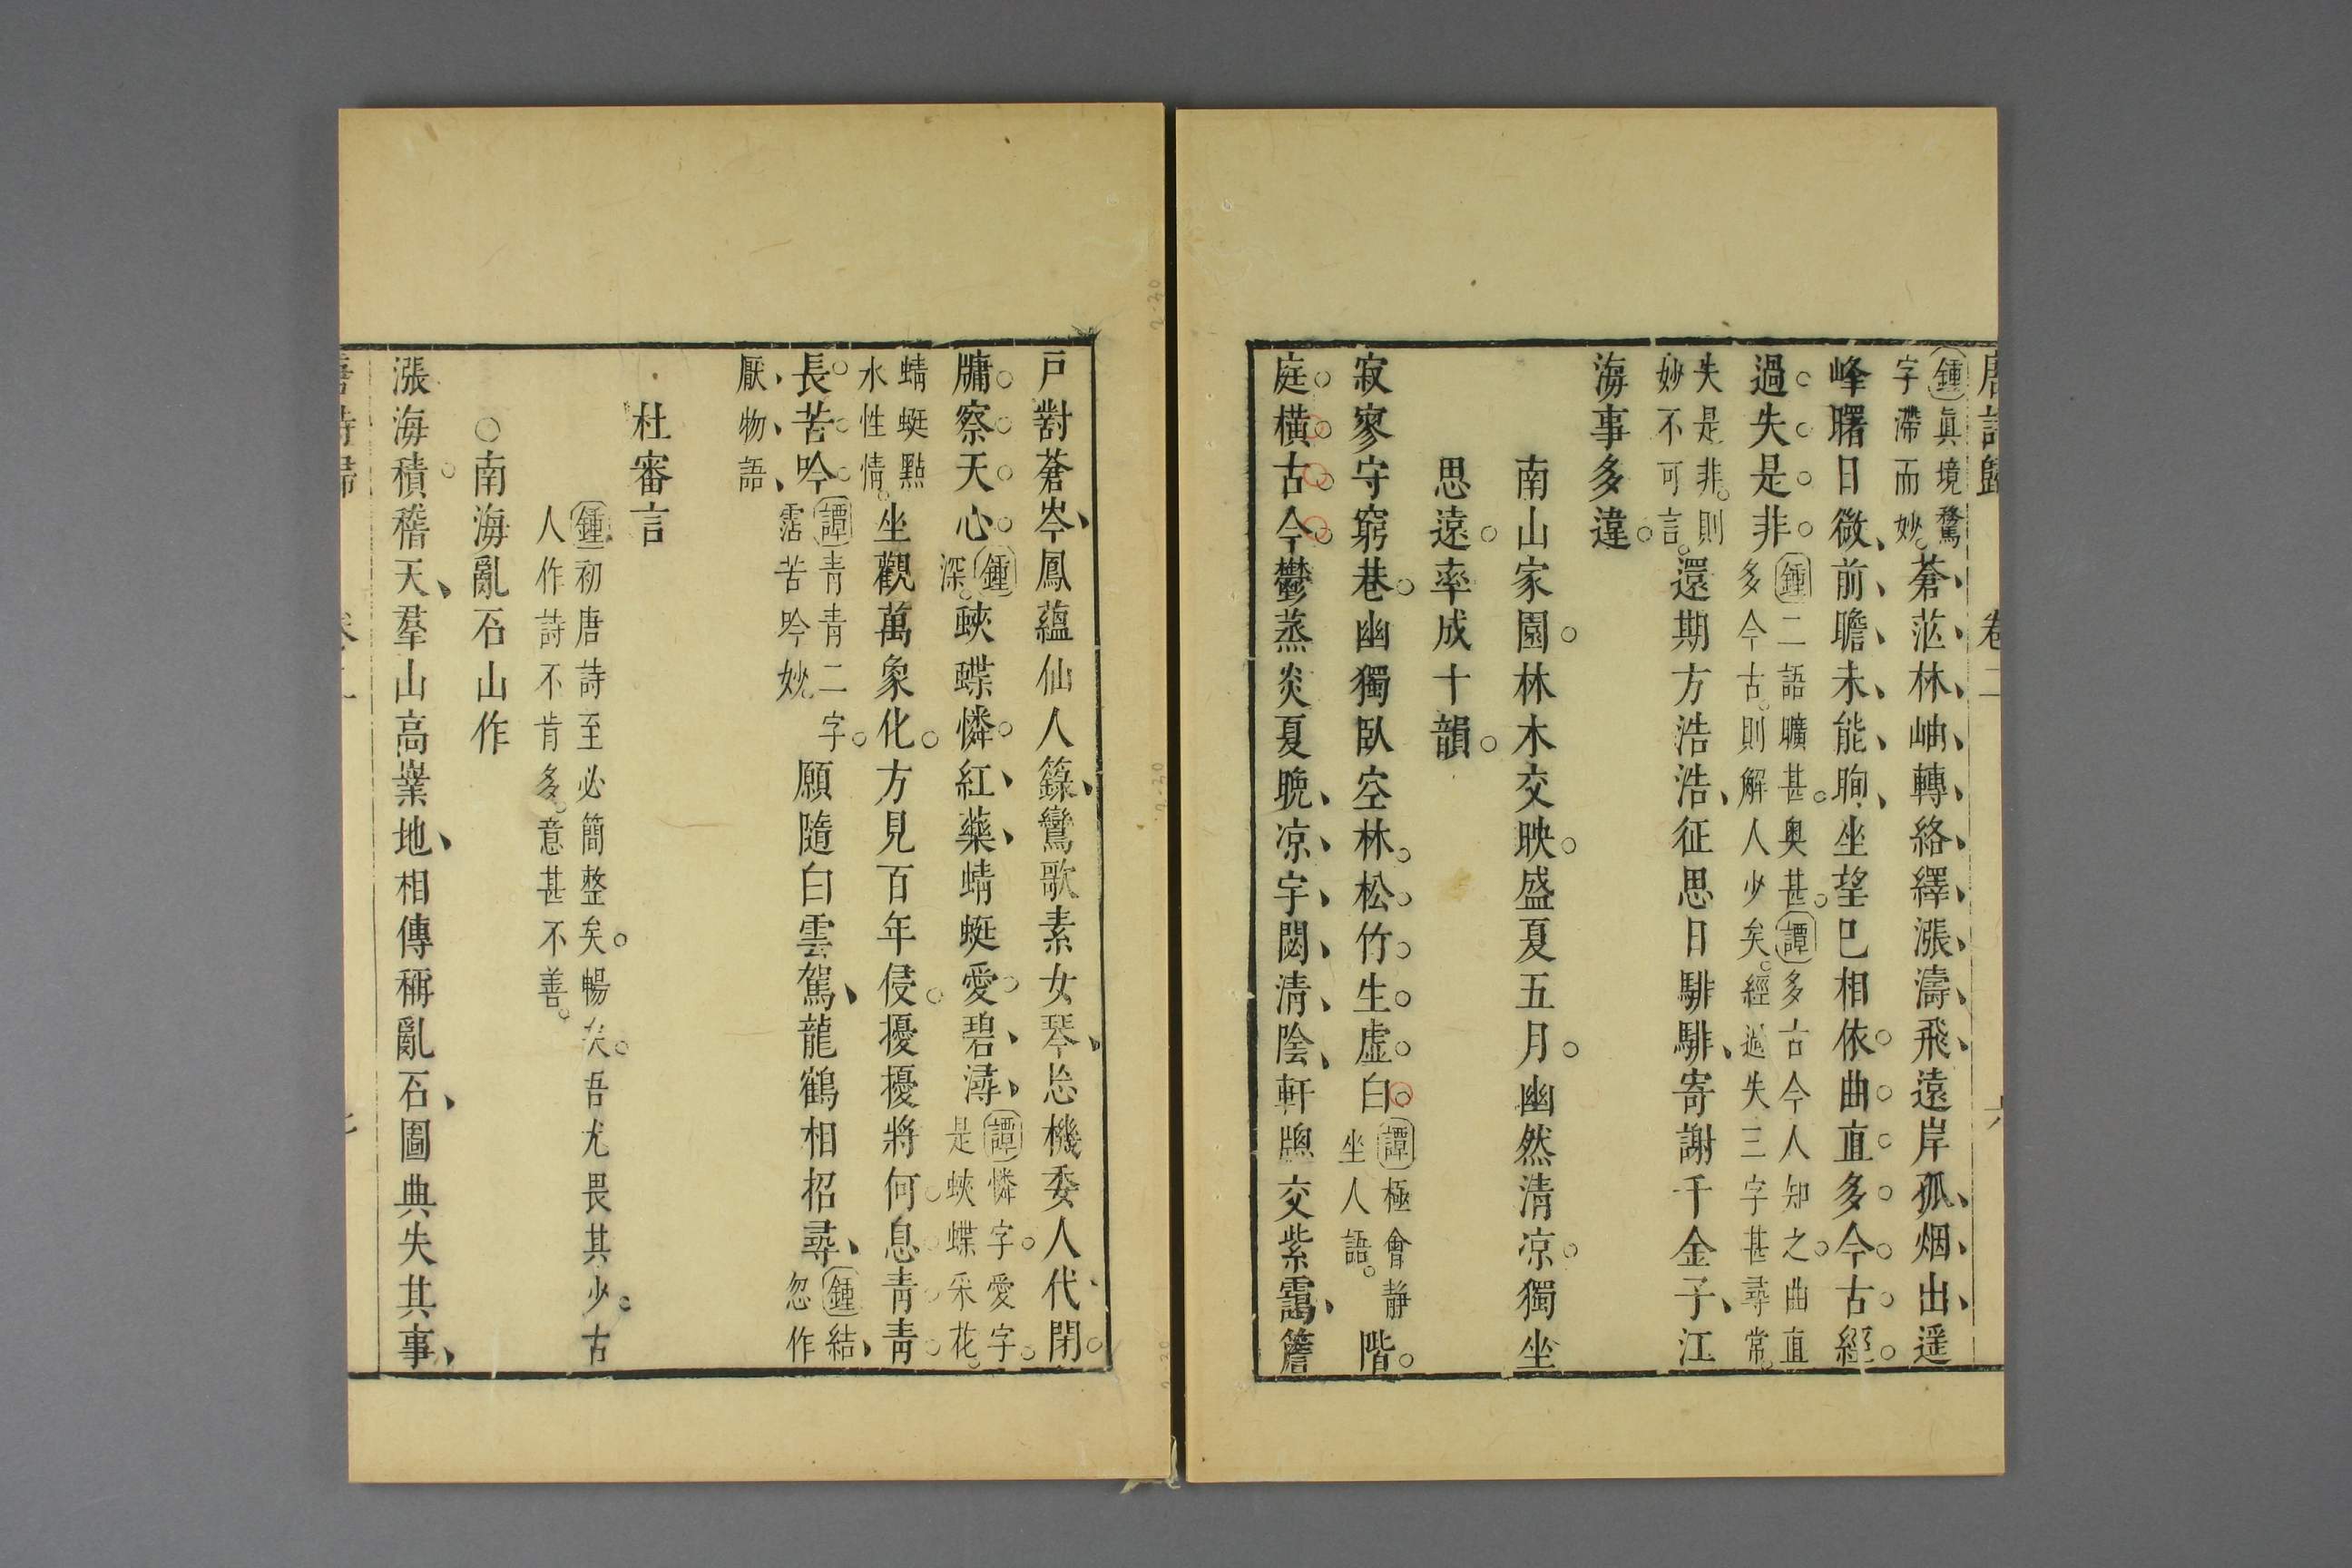 唐詩歸 卷二 六
鍾眞境騖
字滯而妙蒼茫林岫轉絡繹漲濤飛遠岸孤烟出遥
峰曙日微前瞻未能眴坐望已相依曲直多今古經
過失是非鍾二語曠甚奥甚譚多古今人知之曲直
多今古則解人少矣經過失三字甚尋常
失是非則
妙不可言還期方浩浩征思日騑騑寄謝千金子江
海事多違
南山家園林木交映盛夏五月幽然清凉獨坐
思遠率成十韻
寂寥守窮巷幽獨臥空林松竹生虛白譚極會静
坐人語階
庭橫古今鬱蒸炎夏晚凉宇閟清陰軒牕交紫靄簷
戸對蒼岑鳳蘊仙人籙鸞歌素女琴忘機委人代閉
牗察天心鍾
深蛺蝶憐紅藥蜻蜓愛碧潯譚憐字愛字
是蛺蝶采花
蜻蜓點
水性情坐觀萬象化方見百年侵擾擾將何息青青
長苦吟譚青青二字
霑苦吟妙願隨白雲駕龍鶴相招尋鍾結
忽作
厭物語
杜審言
鍾初唐詩至必簡整矣暢矣吾尤畏其少古
人作詩不肯多意甚不善
○南海亂石山作
漲海積稽天羣山高嶪地相傳稱亂石圖典失其事
唐詩歸 卷二 七